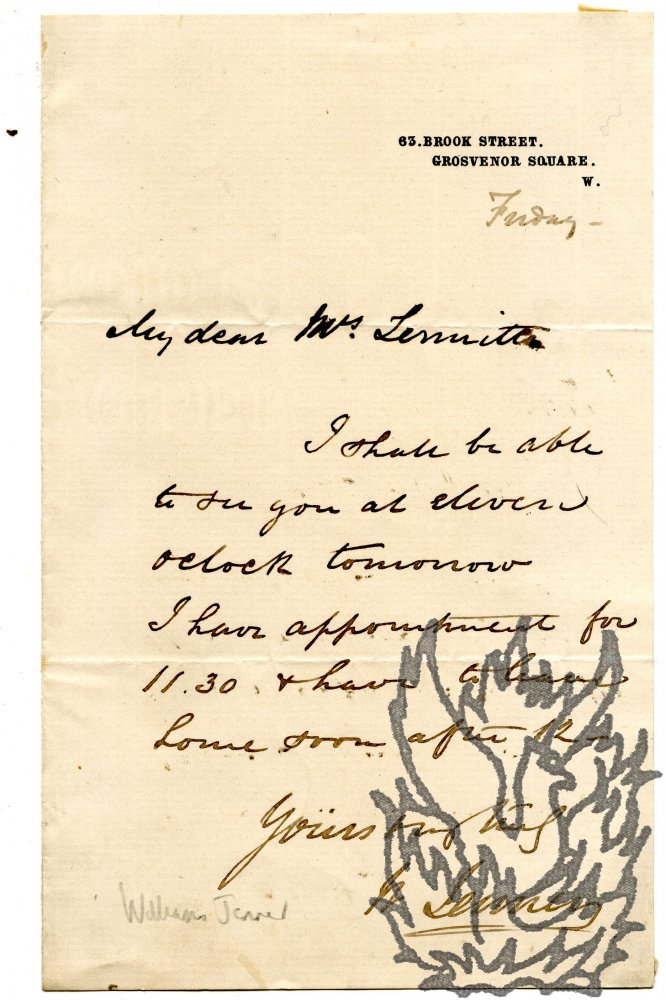 63. BROOK STREET.
GROSVENOR SQUARE.
W.
Friday –
My dear Mrs. Lermitte
I shall be able
to see you at eleven
oclock tomorrow
I have appointment for
11.30 & have to leave
home soon after 12 –
Yours very truly
W Jenner
William Jenner